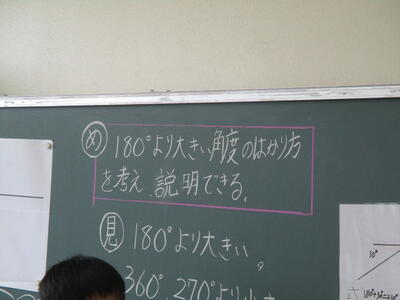 め 180°より大きい角度のはかり方
を考え、説明できる。
見 180°より大きい。
360°、270°より小さ
10°
式 180°+